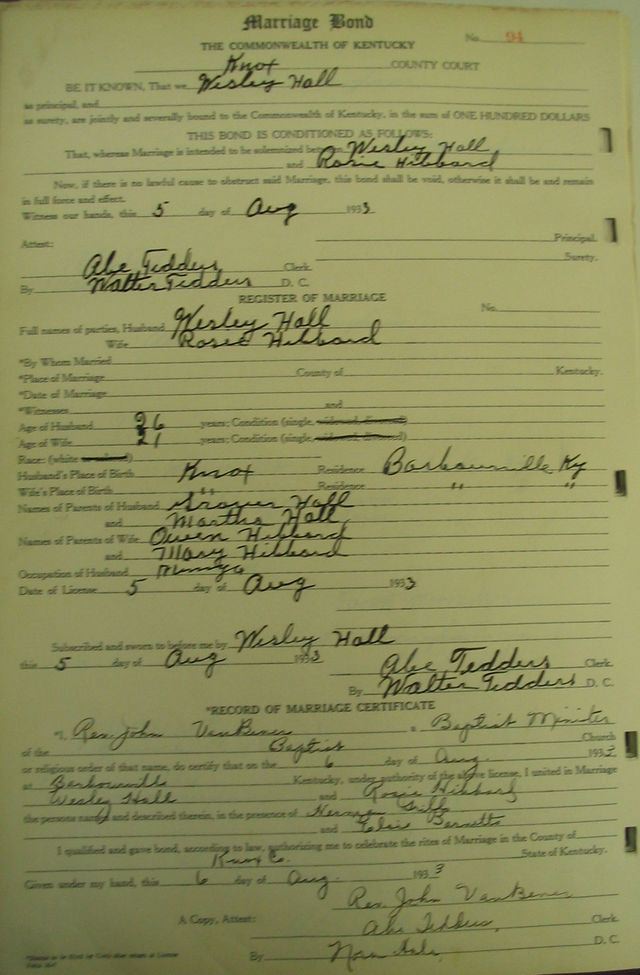 Marriage Bond
No. 94
THE COMMONWEALTH OF KENTUCKY
Knox COUNTY COURT
BE IT KNOWN, That we Wesley Hall
as principal, and
as surety, are jointly and severally bound to the Commonwealth of Kentucky, in the sum of ONE HUNDRED DOLLARS
THIS BOND IS CONDITIONED AS FOLLOWS:
That, whereas Marriage is intended to be solemnized between Wesley Hall
and Rosie Hibbard
Now, if there is no lawful cause to obstruct said Marriage, this bond shall be void, otherwise it shall be and remain
in full force and effect.
Witness our hands, this 5 day of Aug 1933
Principal.
Attest:
Surety.
Abe Tedders Clerk
By Walter Tedders D. C.
REGISTER OF MARRIAGE
No.
Full names of parties, Husband Wesley Hall
Wife Rosie Hibbard
*By Whom Married
*Place of Marriage County of Kentucky.
*Date of Marriage
*Witnesses and
Age of Husband 26 years; Condition (single, widowed, divorced)
Age of Wife 21 years; Condition (single, widowed, divorced)
Race: (white
Husband's Place of Birth Knox Residence Barbourville Ky
Wife's Place of Birth " Residence " "
Names of Parents of Husband Hall
and Martha Hall
Names of Parents of Wife Owen Hibbard
and Mary Hibbard
Occupation of Husband
Date of License 5 day of Aug 1933
Subscribed and sworn to before me by Wesley Hall
this 5 day of Aug 1933
Abe Tedders Clerk
By Walter Tedders D. C.
*RECORD OF MARRIAGE CERTIFICATE
*I, Rev. John VanBever a Baptist Minister
of the Baptist Church
or religious order of that name, do certify that on the 6 day of Aug. 193
at Barbourville Kentucky, under authority of the above license, I united in Marriage
Wesley Hall and Rosie Hibbard
the persons named and described therein, in the presence of Herman
and Elsie
I qualified and gave bond, according to law, authorizing me to celebrate the rites of Marriage in the County of
Knox Co. State of Kentucky.
Given under my hand, this 6 day of Aug. 1933
Rev. John VanBever
A Copy, Attest: Abe Tedders, Clerk
By Nora D. C.